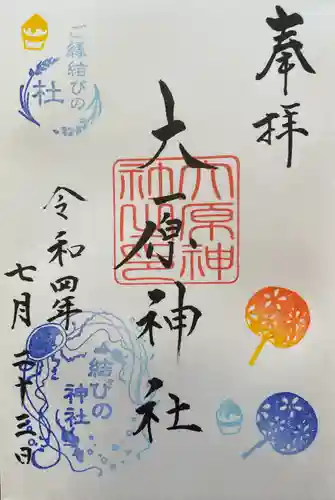 奉拝
大原神社
大原神社之印
令和四年
七月二十三日
ご縁結びの
社
結びの
神社